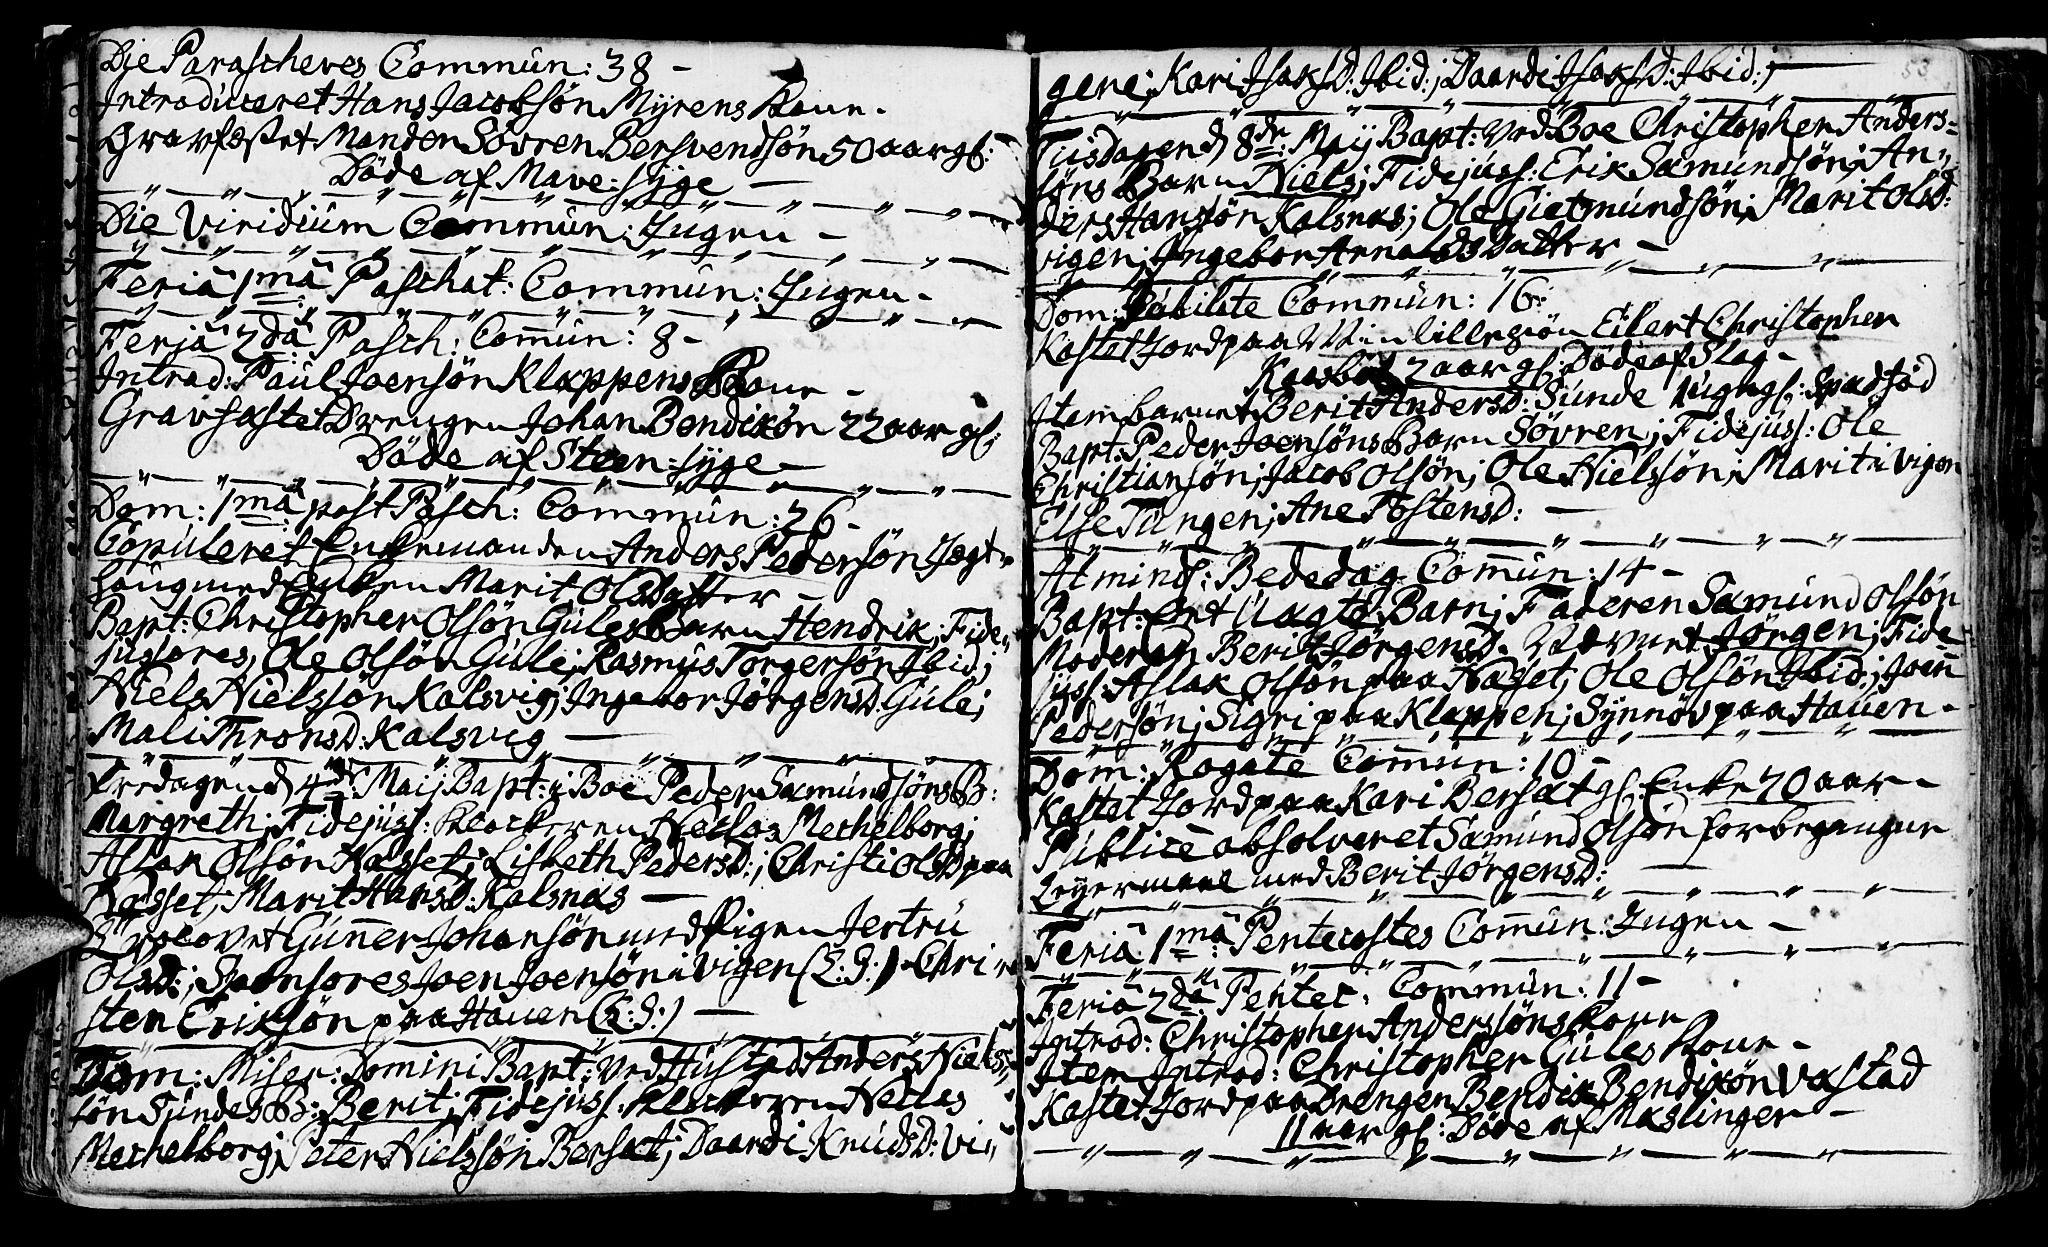 Die Parascheves Commun: 38 -
Introduceret Hans Jacobsøn Myrens Kone.
Gravfæstet Manden Søvren Bersvendsøn 50 aar gl:
Døde af Mave-syge -
Die Viridium Commun: Ingen -
Feriâ 1mâ Paschat: Commun: Ingen -
Feriâ 2dâ: Pasch: Comun: 8 -
Introd: Paul Joensøn Klappens Kone -
Gravfæstet Drengen Johan Bendixøn 22 aar gl:
Døde af Steen-syge -
Dom: 1mâ: post Pasch: Commun: 26 -
Copuleret Enkemanden Anders Pedersøn Jægt-
haug med Enken Marit Olsdatter -
Bapt: Christopher Olsøn Gules Barn Hendrik; Fide-
jussores, Ole Olsøn Gule; Rasmus Torgersøn Ibid;
Niels Nielssøn Kalsvig; Ingebor Jørgensd: Gule;
Mali Thronsd: Kalsvig -
Fredagen d 4de: Maij Bapt: i Boe Peder Sæmundsøns B:
Margreth; Fidejuss: Klockeren Neclas Mechelborg;
Aslak Olsøn Hasset; Lisbeth Pedersd:; Christi Olsd paa
Hasset; Marit Hansd: Kalsnæs -
Trolovet Guner Johansøn med Pigen Jertru
Olsd:; Sponsores Joen Joensøn i Vigen (L: S:) Chri-
sten Eriksøn paa Hauen (L: S:) -
Dom: Miser: Domini Bapt: Ved Hustad Anders Niels-
søn Sundes B: Berit; Fidejuss: Klockeren Neclas
Mechelborg; Peter Nielssøn Bersæt; Daardi Knudsd: Vi-
53
gene; Kari Isaksd: Ibid:; Daardi Isaksd: Ibid:;
Tiisdagen d 8de: Maij Bapt: Ved Boe Christopher Anders-
søns Barn Niels; Fidejuss: Erik Sæmundsøn; An-
ders Hansøn Kalsnæs; Ole Gietmundsøn; Marit Olsd:
Vigen; Ingebor Arnoldsdatter -
Dom: Jubilate Commun: 16:
Kastet Jord paa Min lille søn Eilert Christopher
Kaasbøl 2 aar gl: Døde af Slag -
Item barnet Berit Andersd: Sunde
Bapt: Peder Joensøns Barn Søvren; Fidejuss: Ole
Christiansøn; Jacob Olsøn; Ole Nielssøn; Marit i Vigen
Else Tungen; Ane Tostensd: -
Alminds: Bededag Comun: 14 -
Bapt: Eet Uægte Barn; Faderen Sæmund Olsøn
Moderen Berit Jørgensd: Jørgen; Fide-
juss: Aslak Olsøn paa Haset; Ole Olsøn Ibid:; Joen
Pedersøn; Sigri paa Klappen; Synnøv paa Hauen -
Dom: Rogate Comun: 10 -
Kastet Jord paa Kari Bersæt gl: Enke 70 aar -
Publice absolveret Sæmund Olsøn for begangne
Leyermaal med Berit Jørgensd: -
Feriâ 1mâ: Pentecostes Comun: Ingen -
Feriâ 2dâ: Pentec: Commun: 11 -
Introd: Christopher Anderssøns Kone
Item Introd: Christopher Gules Kone -
Kastet Jord paa Drengen Bendix Bendixøn Vastad
11 aar gl: Døde af Mæslinger -